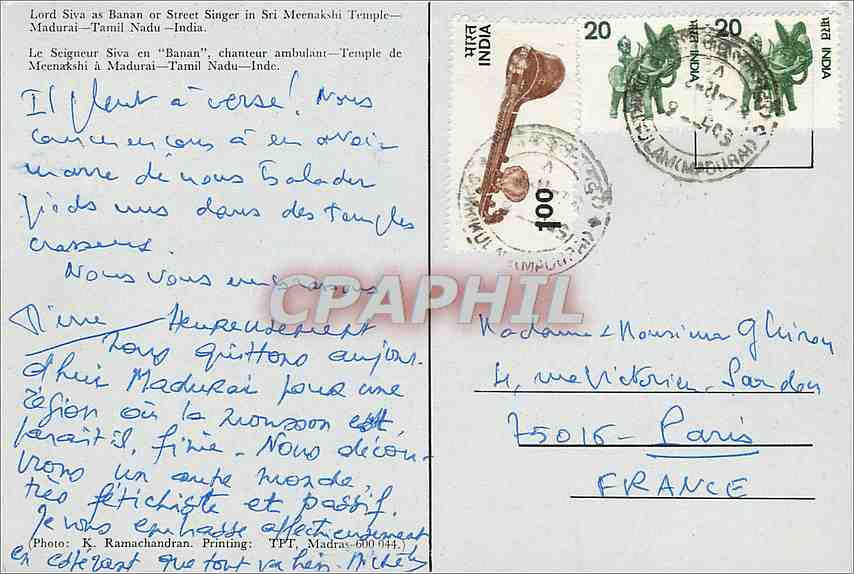 Lord Siva as Banan or Street Singer in Sri Meenakshi Temple—
Madurai—Tamil Nadu —India.
Le Seigneur Siva en "Banan", chanteur ambulant—Temple de
Meenakshi à Madurai—Tamil Nadu—Inde.
Il pleut à verse! Nous
commençons à en avoir
marre de nous balader
pieds nus dans des temples
crasseux.
Nous vous embrassons
Pierre
Heureusement
nous quittons aujour-
d'hui Madurai pour une
région où la mousson est,
paraît il, finie. Nous décou-
vrons un autre monde,
très fétichiste et passif.
Je vous embrasse affectueusement
(Photo: K. Ramachandran. Printing: TPT, Madras-600 044.)
en espérant que tout va bien. Michèle
भारत
INDIA
1.00
20
भारत INDIA
20
भारत INDIA
(MADURAI)
(MADURAI)
CPAPHIL
Madame & Monsieur Ghiron
4, rue Victorien-Sardou
75016 - Paris
FRANCE